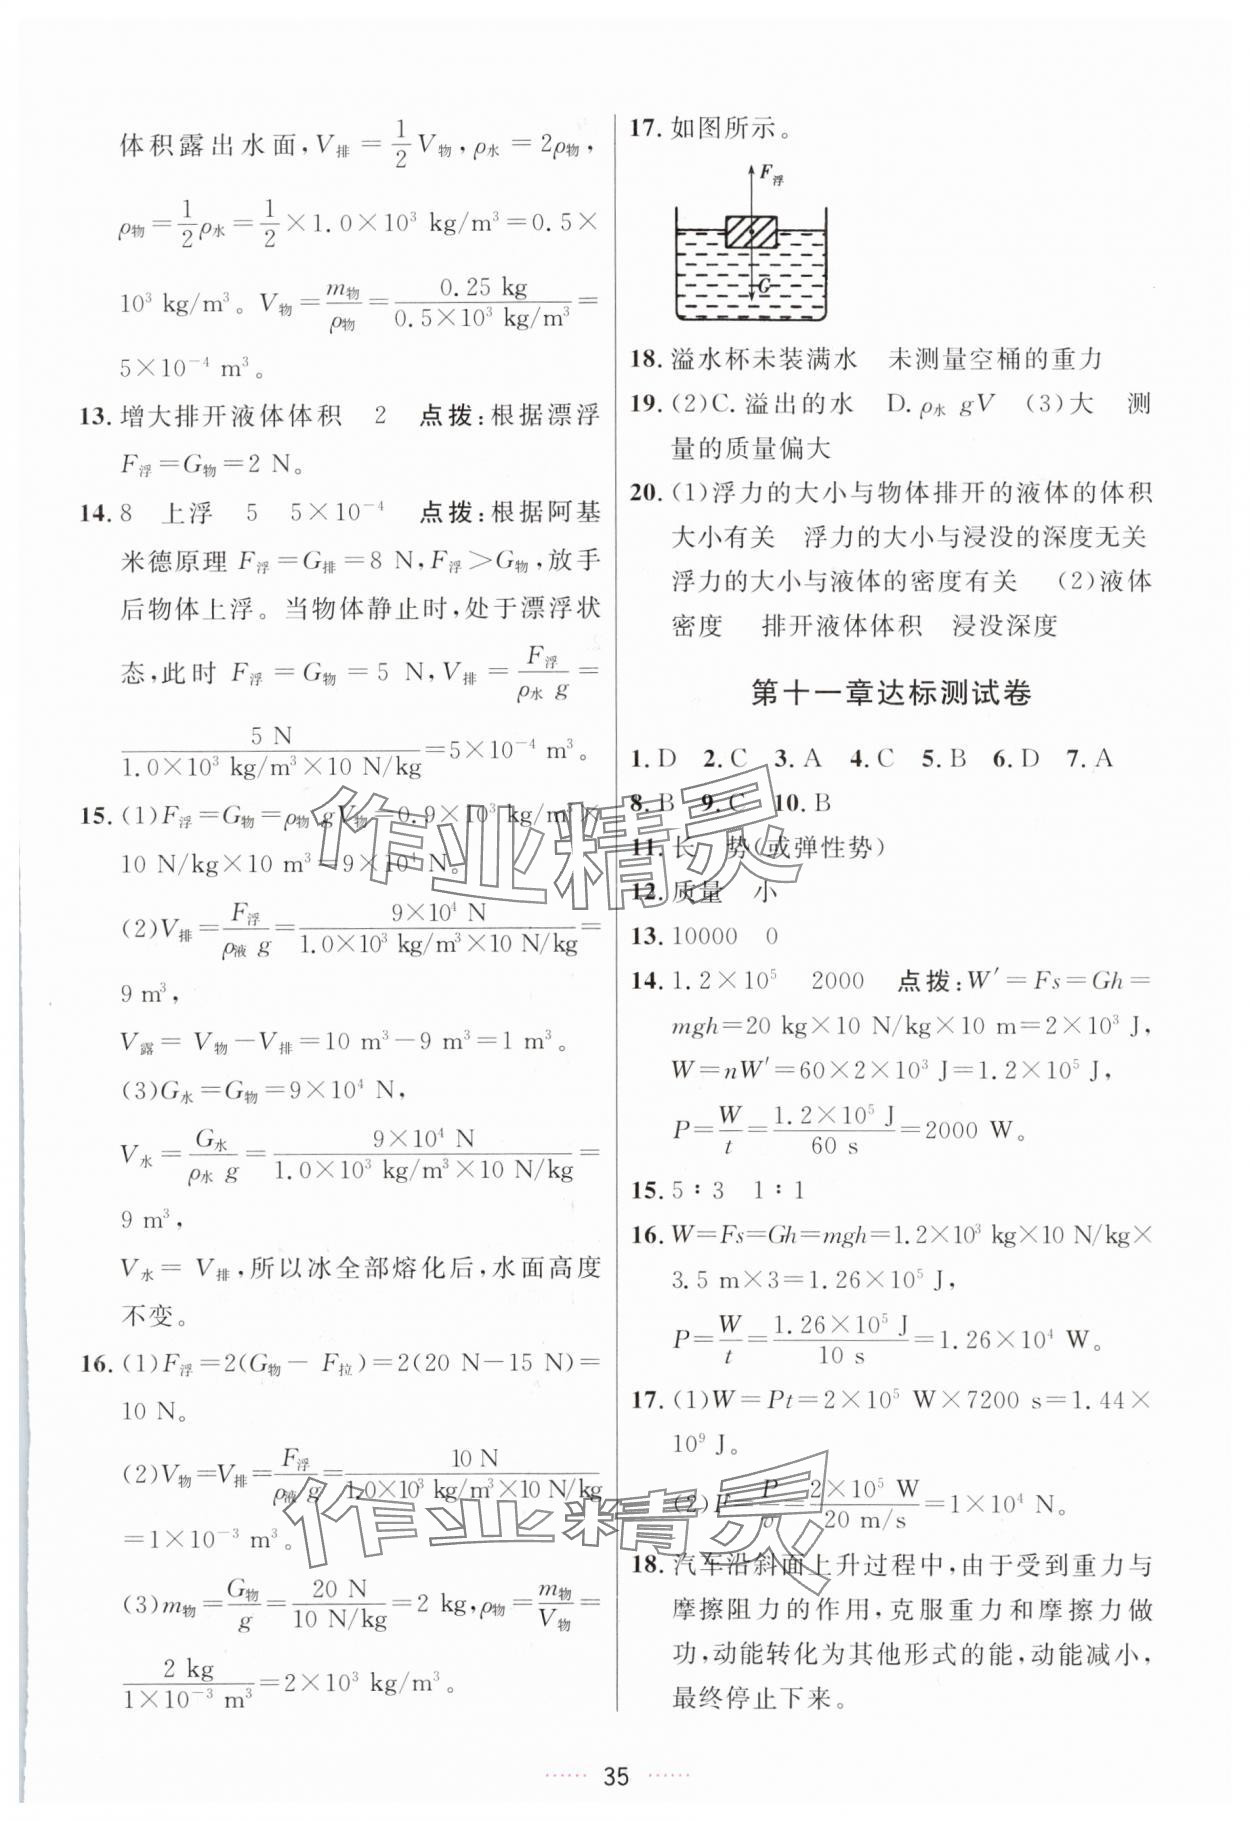 体积露出水面，V排＝1/2 V物，ρ水＝2ρ物，
ρ物＝1/2 ρ水＝1/2×1.0×10³ kg/m³＝0.5×
10³ kg/m³。V物＝m物/ρ物＝0.25 kg/(0.5×10³ kg/m³)＝
5×10⁻⁴ m³。
13. 增大排开液体体积　2　点拨：根据漂浮
F浮＝G物＝2 N。
14. 8　上浮　5　5×10⁻⁴　点拨：根据阿基
米德原理 F浮＝G排＝8 N，F浮＞G物，放手
后物体上浮。当物体静止时，处于漂浮状
态，此时 F浮＝G物＝5 N，V排＝F浮/(ρ水 g)＝
5 N/(1.0×10³ kg/m³×10 N/kg)＝5×10⁻⁴ m³。
15. (1)F浮＝G物＝ρ物 gV物＝0.9×10³ kg/m³×
10 N/kg×10 m³＝9×10⁴ N。
(2)V排＝F浮/(ρ液 g)＝9×10⁴ N/(1.0×10³ kg/m³×10 N/kg)＝
9 m³，
V露＝ V物－V排＝10 m³－9 m³＝1 m³。
(3)G水＝G物＝9×10⁴ N，
V水＝G水/(ρ水 g)＝9×10⁴ N/(1.0×10³ kg/m³×10 N/kg)＝
9 m³，
V水＝ V排，所以冰全部熔化后，水面高度
不变。
16. (1)F浮＝2(G物－ F拉)＝2(20 N－15 N)＝
10 N。
(2)V物＝V排＝F浮/(ρ液 g)＝10 N/(1.0×10³ kg/m³×10 N/kg)
＝1×10⁻³ m³。
(3)m物＝G物/g＝20 N/(10 N/kg)＝2 kg，ρ物＝m物/V物＝
2 kg/(1×10⁻³ m³)＝2×10³ kg/m³。
17. 如图所示。
F浮
G
18. 溢水杯未装满水　未测量空桶的重力
19. (2)C. 溢出的水　D. ρ水 gV　(3)大　测
量的质量偏大
20. (1)浮力的大小与物体排开的液体的体积
大小有关　浮力的大小与浸没的深度无关
浮力的大小与液体的密度有关　(2)液体
密度　排开液体体积　浸没深度
第十一章达标测试卷
1. D　2. C　3. A　4. C　5. B　6. D　7. A
8. B　9. C　10. B
11. 长　势(或弹性势)
12. 质量　小
13. 10000　0
14. 1.2×10⁵　2000　点拨：W′＝Fs＝Gh＝
mgh＝20 kg×10 N/kg×10 m＝2×10³ J，
W＝nW′＝60×2×10³ J＝1.2×10⁵ J，
P＝W/t＝1.2×10⁵ J/60 s＝2000 W。
15. 5∶3　1∶1
16. W＝Fs＝Gh＝mgh＝1.2×10³ kg×10 N/kg×
3.5 m×3＝1.26×10⁵ J，
P＝W/t＝1.26×10⁵ J/10 s＝1.26×10⁴ W。
17. (1)W＝Pt＝2×10⁵ W×7200 s＝1.44×
10⁹ J。
(2)F＝P/v＝2×10⁵ W/(20 m/s)＝1×10⁴ N。
18. 汽车沿斜面上升过程中，由于受到重力与
摩擦阻力的作用，克服重力和摩擦力做
功，动能转化为其他形式的能，动能减小，
最终停止下来。
作业精灵
作业精灵
35